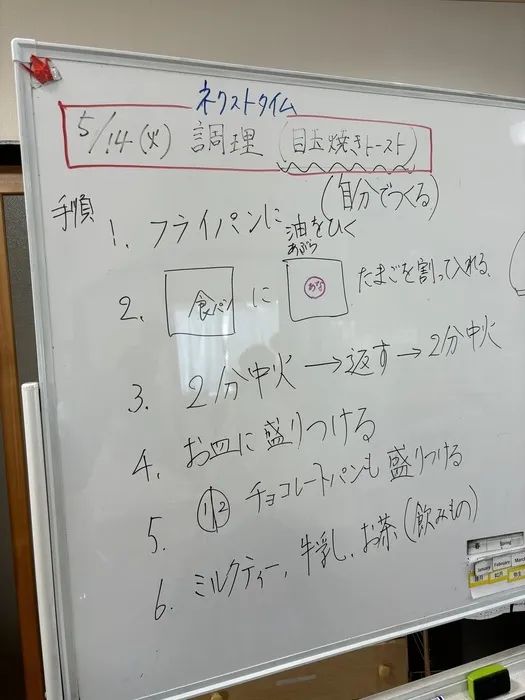 ネクストタイム
5/14(火) 調理 (目玉焼きトースト)
(自分でつくる)
手順
1. フライパンに油をひく
あぶら
2. 食パン に あな たまごを割って入れる。
3. 2分中火→返す→2分中火
4. お皿に盛りつける
5. 1/2 チョコレートパンも盛りつける
6. ミルクティー, 牛乳, お茶(飲みもの)
春 Spring
January February March